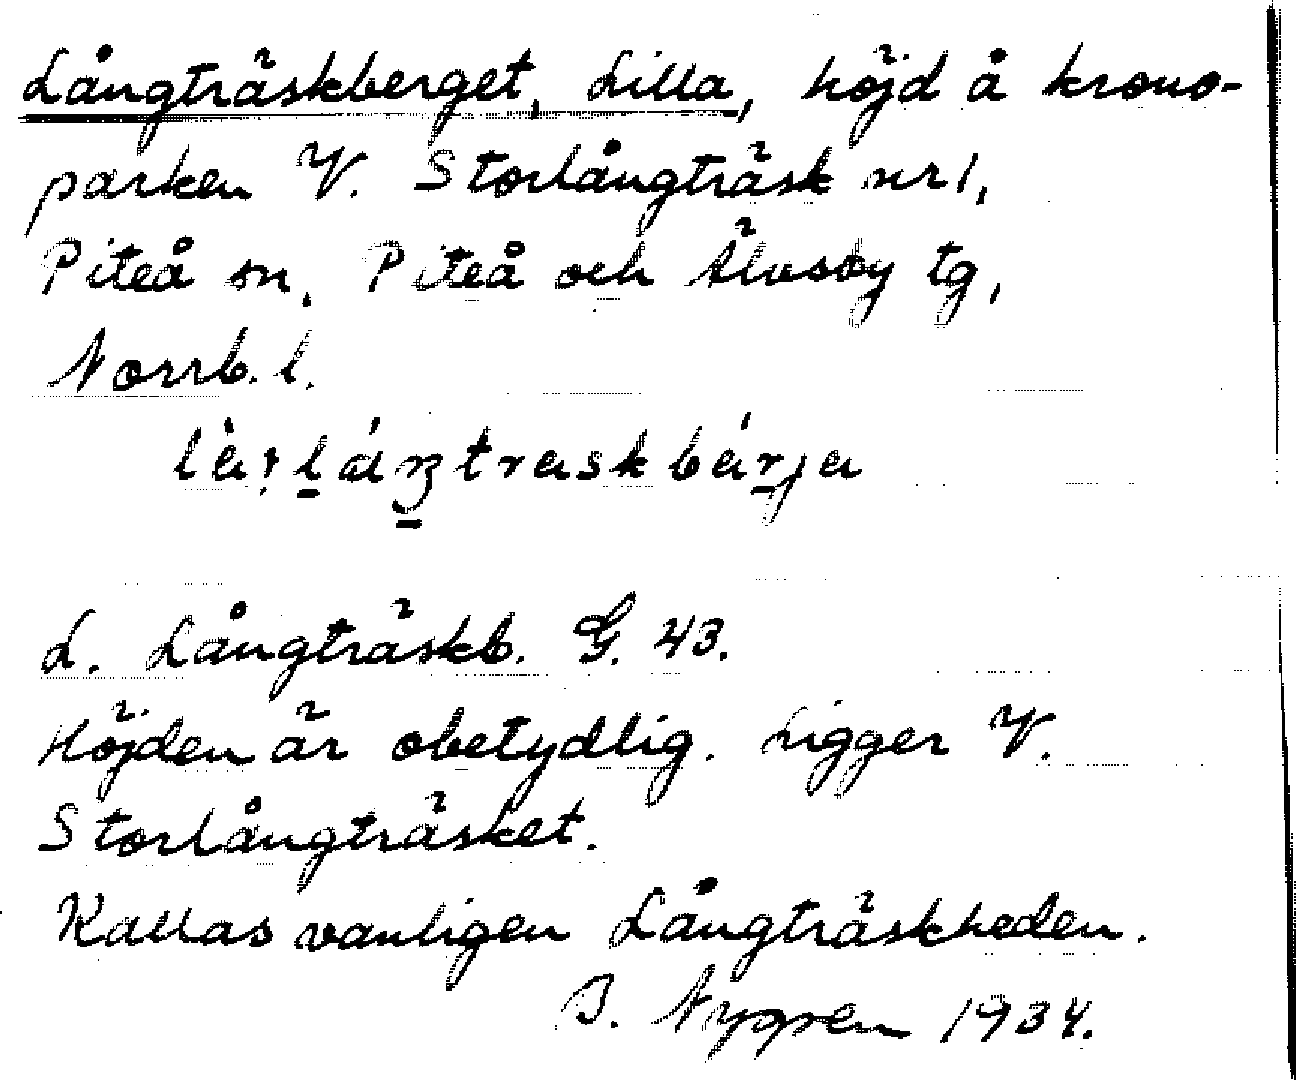 Långträskberget, Lilla, höjd å krono-
parken V. Storlångträsk nr 1,
Piteå sn, Piteå och Älvsby tg,
Norrb. l.
L. Långträskb. G. 43.
Höjden är obetydlig. Ligger V.
Storlångträsket.
Kallas vanligen Långträskheden.
Nygren 1934.